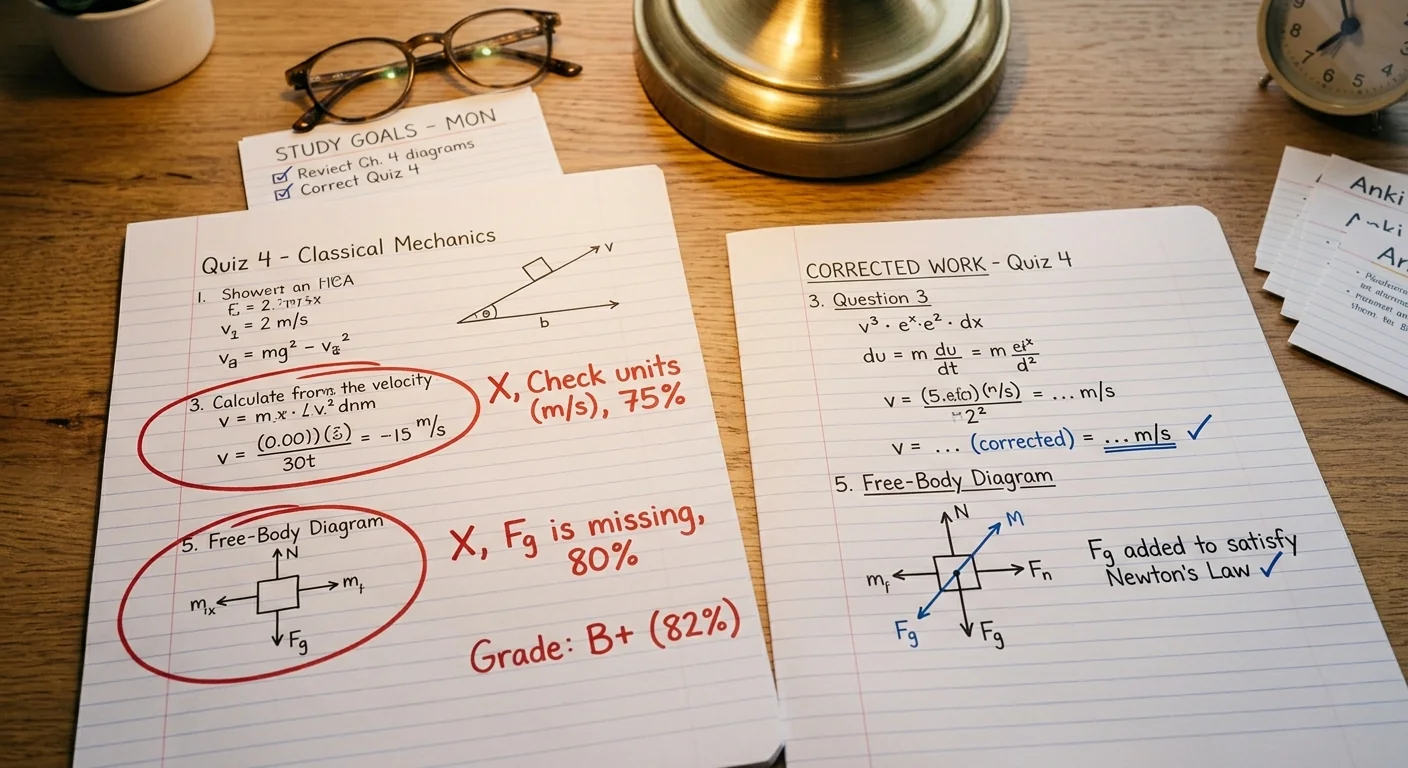 STUDY GOALS - MON
Reviect Ch. 4 diagrams
Correct Quiz 4
Quiz 4 - Classical Mechanics
1. Showert an
v₁ = 2 m/s
= mg² - v
v
θ
b
3. Calculate from the velocity
v = m.x · v.² dnm
v = (0.00))( ) / 30t = -15 m/s
X, Check units
(m/s), 75%
5. Free-Body Diagram
N
Fg
X, Fg is missing,
80%
Grade: B+ (82%)
CORRECTED WORK - Quiz 4
3. Question 3
v³ · eˣ·e² · dx
du = m du/dt = m /d²
v = (5. )( /s) / 2² = ... m/s
v = ... (corrected) = ... m/s ✓
5. Free-Body Diagram
N
M
Fn
Fg
Fg
Fg added to satisfy
Newton's Law ✓
Anki
9
8
7
6
5
4
3